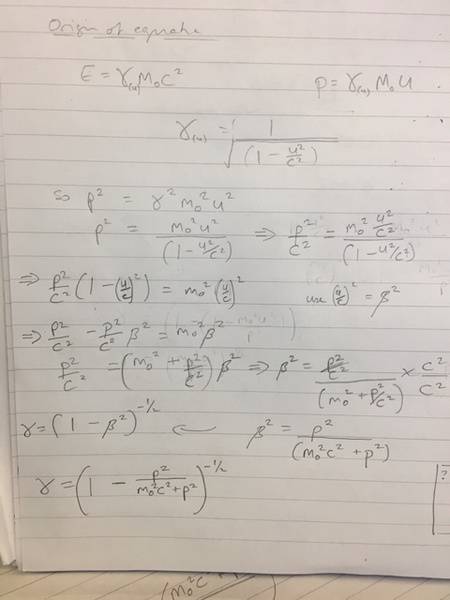 Origin of equation
E = γ(u) M₀c² p = γ(u) M₀u
γ(u) = 1/√(1 - u²/c²)
So p² = γ² m₀² u²
p² = m₀²u²/(1 - u²/c²) ⇒ p²/c² = m₀² u²/c²/(1 - u²/c²)
⇒ p²/c² (1 - (u/c)²) = m₀² (u/c)² use (u/c)² = β²
⇒ p²/c² - p²/c² β² = m₀² β²
p²/c² = (m₀² + p²/c²) β² ⇒ β² = p²/c²/(m₀² + p²/c²) × c²/c²
γ = (1 - β²)^-1/2 ← β² = p²/(m₀²c² + p²)
γ = (1 - p²/(m₀²c² + p²))^-1/2
?